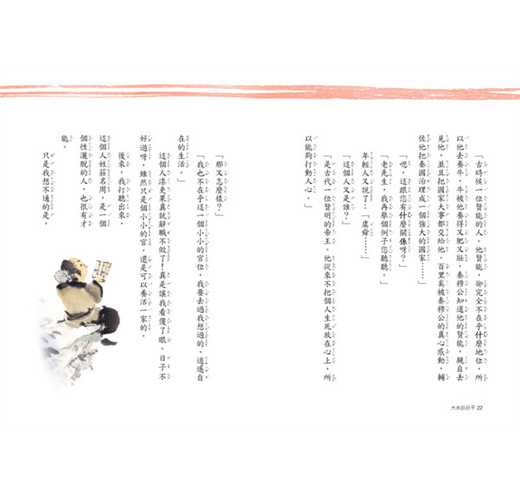 「古時候一位賢能的人，他賢能，卻完全不在乎什麼地位，所
以他去養牛，牛被他養得又肥又壯，秦穆公知道他的賢能，親自去
見他，並且把國家大事都交給他，百里奚被秦穆公的真心感動，輔
佐他把秦國治理成一個強大的國家……」
「嗯，這跟您有什麼關係呀？」
「老先生，我再舉個例子您聽聽。」
年輕人又說了：「虞舜……」
「這個人又是誰？」
「是古代一位賢明的帝王，他從來不把個人生死放在心上，所
以能夠打動人心。」
「那又怎麼樣？」
「我也不在乎這一個小小的官位，我要去過我想過的、逍遙自
在的生活。」
這個人後來果真就辭職不做了！真是讓我看傻了眼，日子不
好過呀，雖然只是個小小的官，還是可以養活一家的。
後來，我打聽出來，
這個人姓莊名周，是一個
個性灑脫的人，也很有才
能。
只是我想不通的是，
22